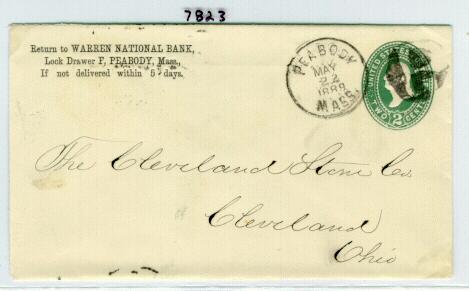 7823
Return to WARREN NATIONAL BANK,
Lock Drawer F, PEABODY, Mass.,
If not delivered within 5 days.
PEABODY
4
MAY
22
1888
MASS.
UNITED STATES
TWO 2 CENTS
The Cleveland Stone Co.
Cleveland
Ohio